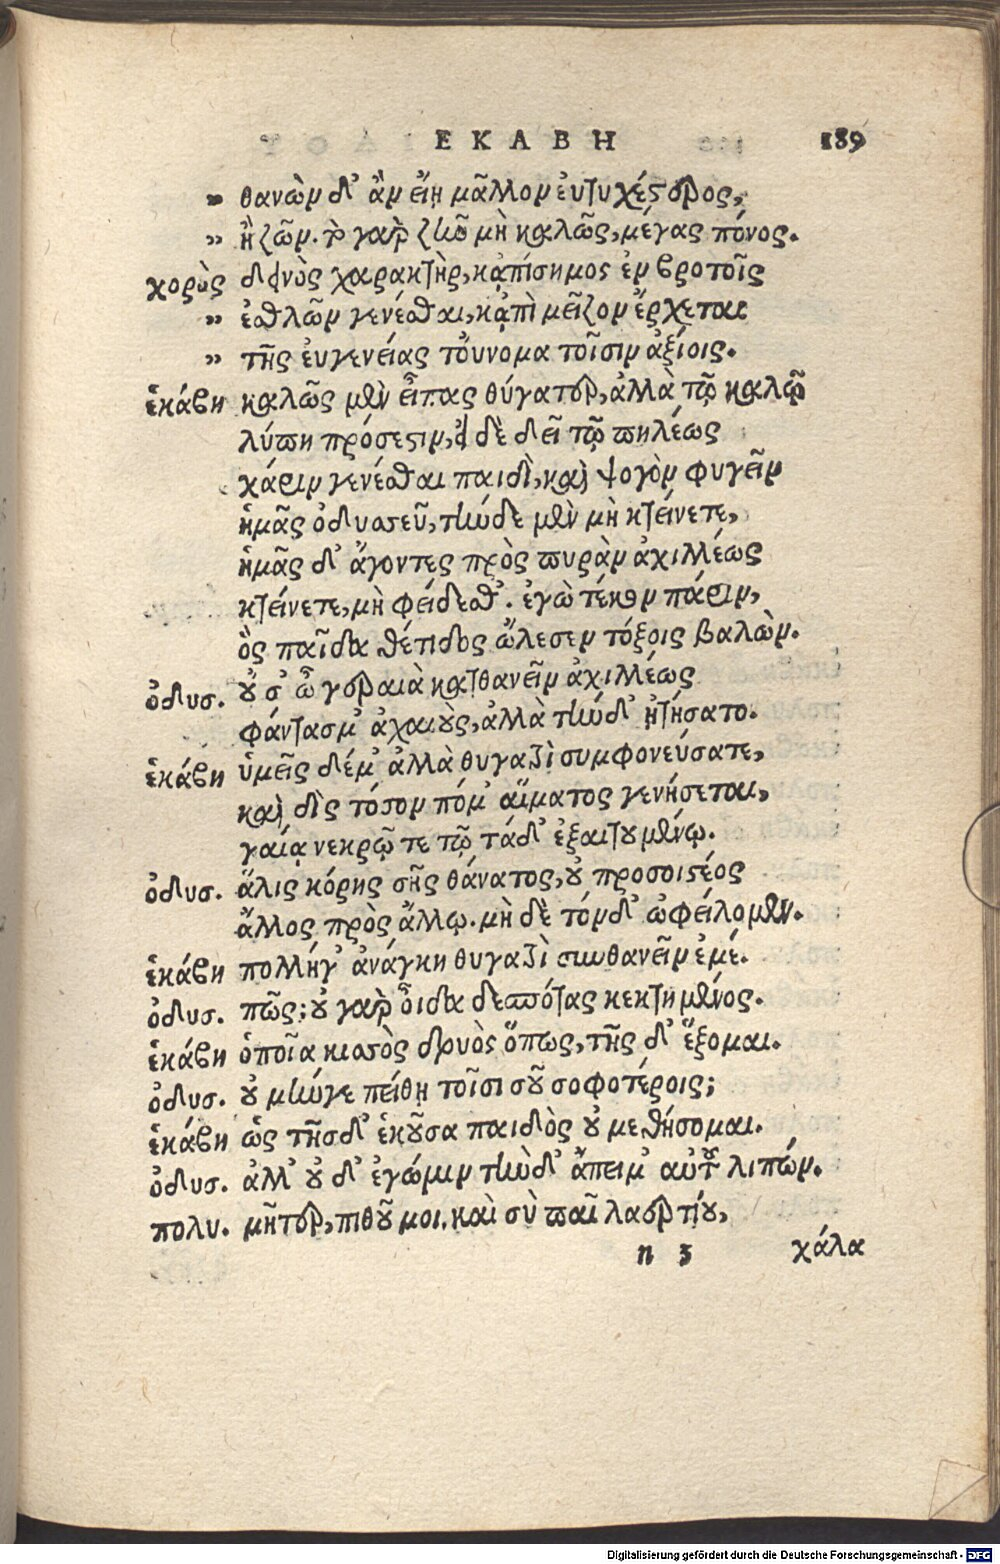 ΕΚΑΒΗ 189
„ θανὼν δ' ἂν εἴη μᾶλλον ἐυτυχέστερος,
„ ἢ ζῶν. τὸ γὰρ ζῆν μὴ καλῶς, μέγας πόνος.
χορὸς δεινὸς χαρακτὴρ, κἀπίσημος ἐν βροτοῖς
„ ἐσθλῶν γενέσθαι, κἀπὶ μεῖζον ἔρχεται
„ τῆς ἐυγενείας τοὔνομα τοῖσιν ἀξίοις.
ἑκάβη καλῶς μὲν εἶπας θύγατερ, ἀλλὰ τῷ καλῷ
λύπη πρόσεστιν, εἰ δὲ δεῖ τῷ πηλέως
χάριν γενέσθαι παιδὶ, καὶ ψογὸν φυγεῖν
ἡμᾶς ὀδυσσεῦ, τήνδε μὲν μὴ κτείνετε,
ἡμᾶς δ' ἄγοντες πρὸς πυρὰν ἀχιλλέως
κτείνετε, μὴ φείδεσθ'. ἐγὼ τέκον πάριν,
ὃς παῖδα θέτιδος ὤλεσεν τόξοις βαλὼν.
ὀδυσ. οὔ σ' ὦ γεραιὰ κατθανεῖν ἀχιλλέως
φάντασμ' ἀχαιοὺς, ἀλλὰ τήνδ' ᾐτήσατο.
ἑκάβη ὑμεῖς δέμ' ἀλλὰ θυγατρὶ συμφονεύσατε,
καὶ δὶς τόσον πόμ' αἵματος γενήσεται,
γαίᾳ νεκρῷ τε τῷ τάδ' ἐξαιτουμένῳ.
ὀδυσ. ἅλις κόρης σῆς θάνατος, οὐ προσοιστέος
ἄλλος πρὸς ἄλλῳ. μὴ δὲ τόνδ' ὠφείλομεν.
ἑκάβη πολλήγ' ἀνάγκη θυγατρὶ συνθανεῖν ἐμέ.
ὀδυσ. πῶς; οὐ γὰρ οἶδα δεσπότας κεκτημένος.
ἑκάβη ὁποῖα κισσὸς δρυὸς ὅπως, τῆς δ' ἕξομαι.
ὀδυσ. οὐ μήνγε πείθη τοῖσι σοῦ σοφοτέροις;
ἑκάβη ὡς τῆσδ' ἑκοῦσα παιδὸς οὐ μεθήσομαι.
ὀδυσ. ἀλλ' οὐ δ' ἐγώμιν τὴνδ' ἄπειμ' αὐτοῦ λιπών.
πολυ. μῆτερ, πιθοῦ μοι. καὶ σὺ παῖ λαερτίου,
n 3 χάλα
Digitalisierung gefördert durch die Deutsche Forschungsgemeinschaft - DFG